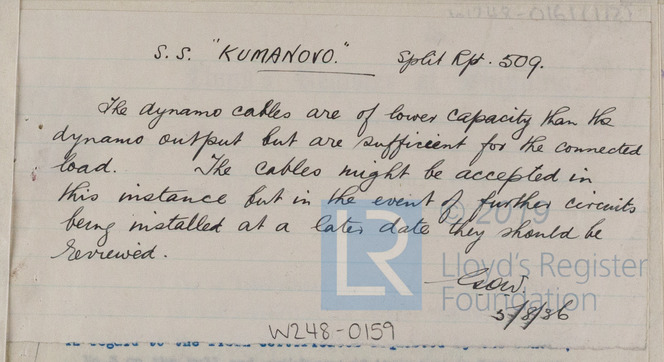 W248-0161(1/2)
S.S. "KUMANOVO." Split Rpt. 509.
The dynamo cables are of lower capacity than the
dynamo output but are sufficient for the connected
load. The cables might be accepted in
this instance but in the event of further circuits
being installed at a later date they should be
reviewed.
LR © 2019
Lloyd's Register
Foundation
5/8/36
W248-0159